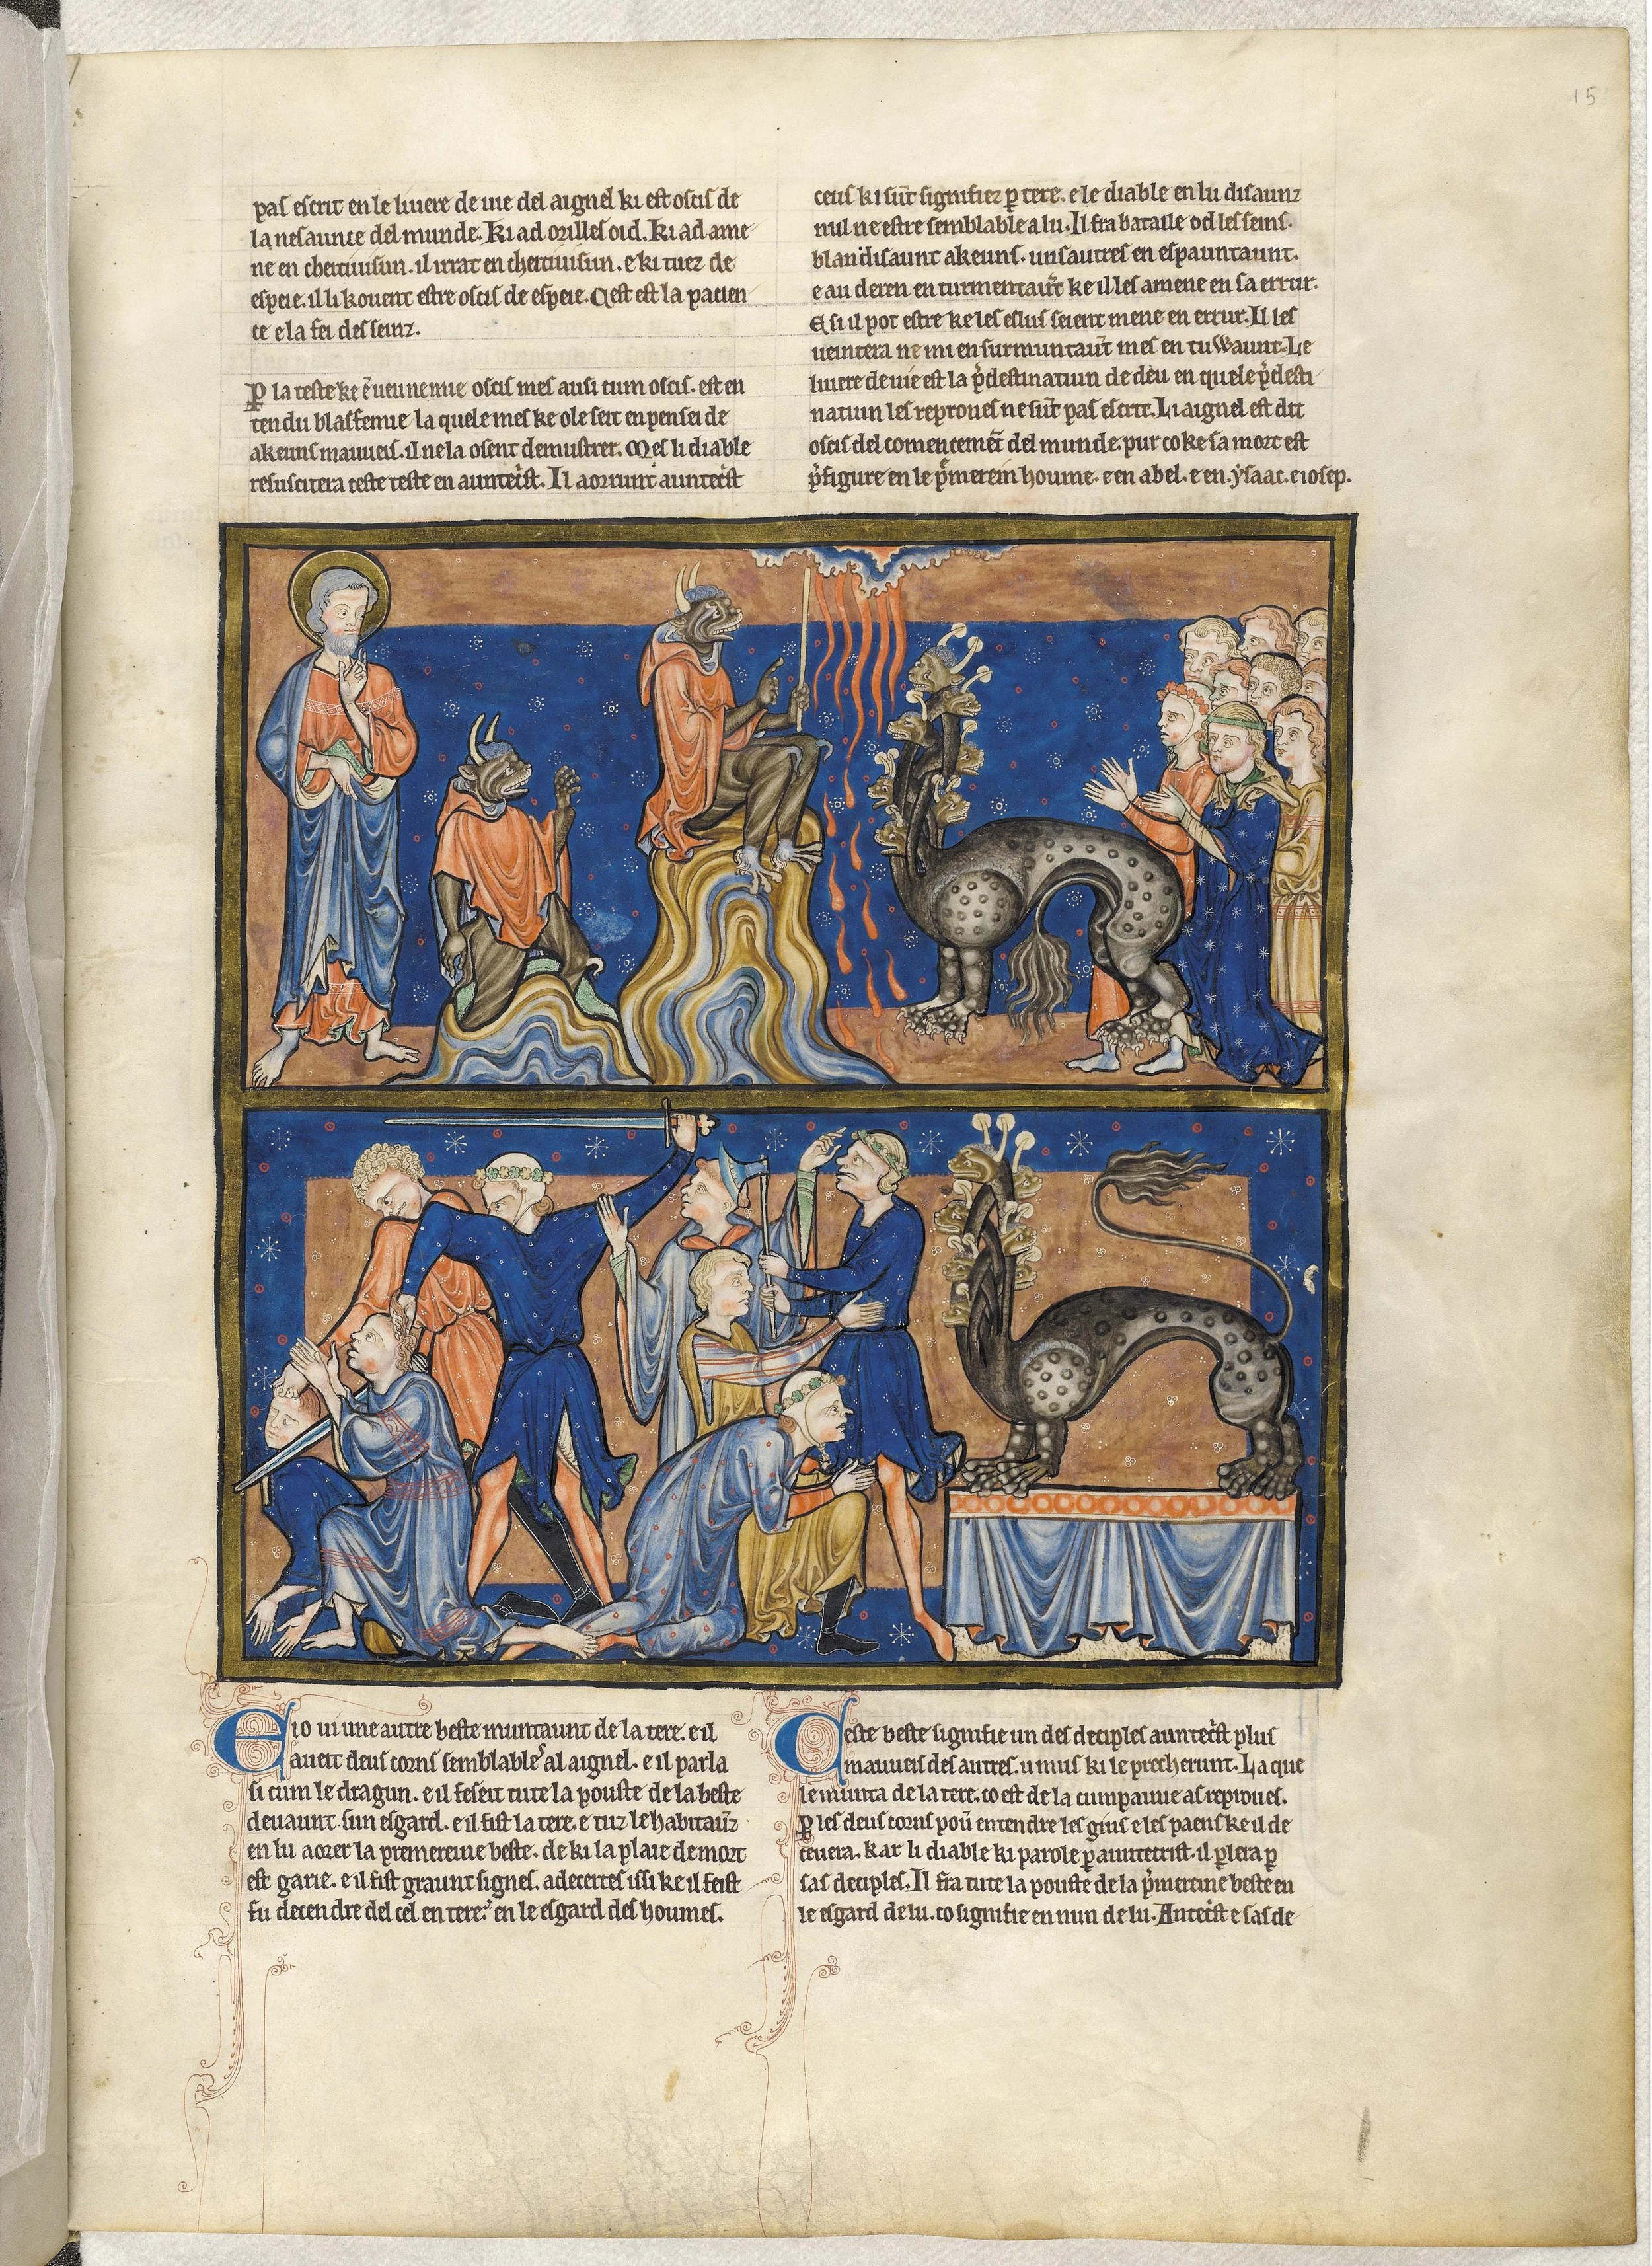 15
pas escrit en le livere de vie del aignel ki est ocis de
la nesaunce del munde. Ki ad orilles oid. Ki ad ame
ne en cheitivisun. il irrat en cheitivisun. e ki tuez de
espeie. il li kovent estre ocis de espeie. Cest est la pacien
ce e la fei des seinz.
P̲ la teste ke ē ueunenue ocis mes ausi cum ocis. est en
tendu blasfemie la quele mes ke ole seit en pensei de
akeuns mauveis. il ne la osent demustrer. Mes li diable
resuscitera ceste teste en auntec̃st. Il aorrunt auntec̃st
ceus ki sūt signifiez p̲ tere. e le diable en lu disaunz
nul ne estre semblable a lu. Il fra bataille od les seins.
blandisaunt akeuns. uns autres en espauntaunt.
e au deren en turmentaūt ke il les amene en sa errur.
E si il pot estre ke les eslus seient mene en errur. Il les
veintera ne mi en surmuntaūt mes en tuwaunt. Le
livere de vie est la p̃destinatiun de deu en quele p̃desti
natiun les reproves ne sūt pas escrit. Li aignel est dit
ocis del comencemēt del munde. pur co ke sa mort est
p̃figure en le p̃merein houme. e en abel. e en. ysaac. e iosep.
E io vi une autre beste muntaunt de la tere. e il
aveit deus corns semblables al aignel. e il parla
si cum le dragun. e il feseit tute la pouste de la beste
devaunt sun esgard. e il fist la tere. e tuz le habitaūz
en lu aorer la premereine beste. de ki la plaie de mort
est garie. e il fist graunt signes. adecertes issi ke il feist
fu decendre del cel en tere. en le esgard des houmes.
Ceste beste signifie un des deciples auntec̃st plus
mauveis des autres. u mus ki le precherunt. La que
le munta de la tere. co est de la cumpainie as reproves.
P̲ les deus corns poū entendre les gius e les paens ke il de
cevera. kar li diable ki parole p̲ auntecrist. il p̲lera p̲
sas deciples. Il fra tute la pouste de la p̃mereine beste en
le esgard de lu. co signifie en nun de lu. Antec̃st e sas de